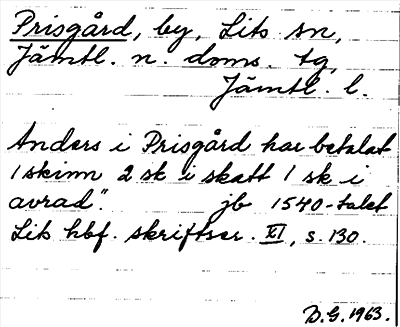 Prisgård, by, Lits sn,
Jämtl. n. doms. tg,
Jämtl. l.
Anders i Prisgård har betalat
1 skinn 2 sk i skatt 1 sk i
avrad". jb 1540-talet
Lits hbf. skriftser. XI, s. 130.
D.G. 1963.